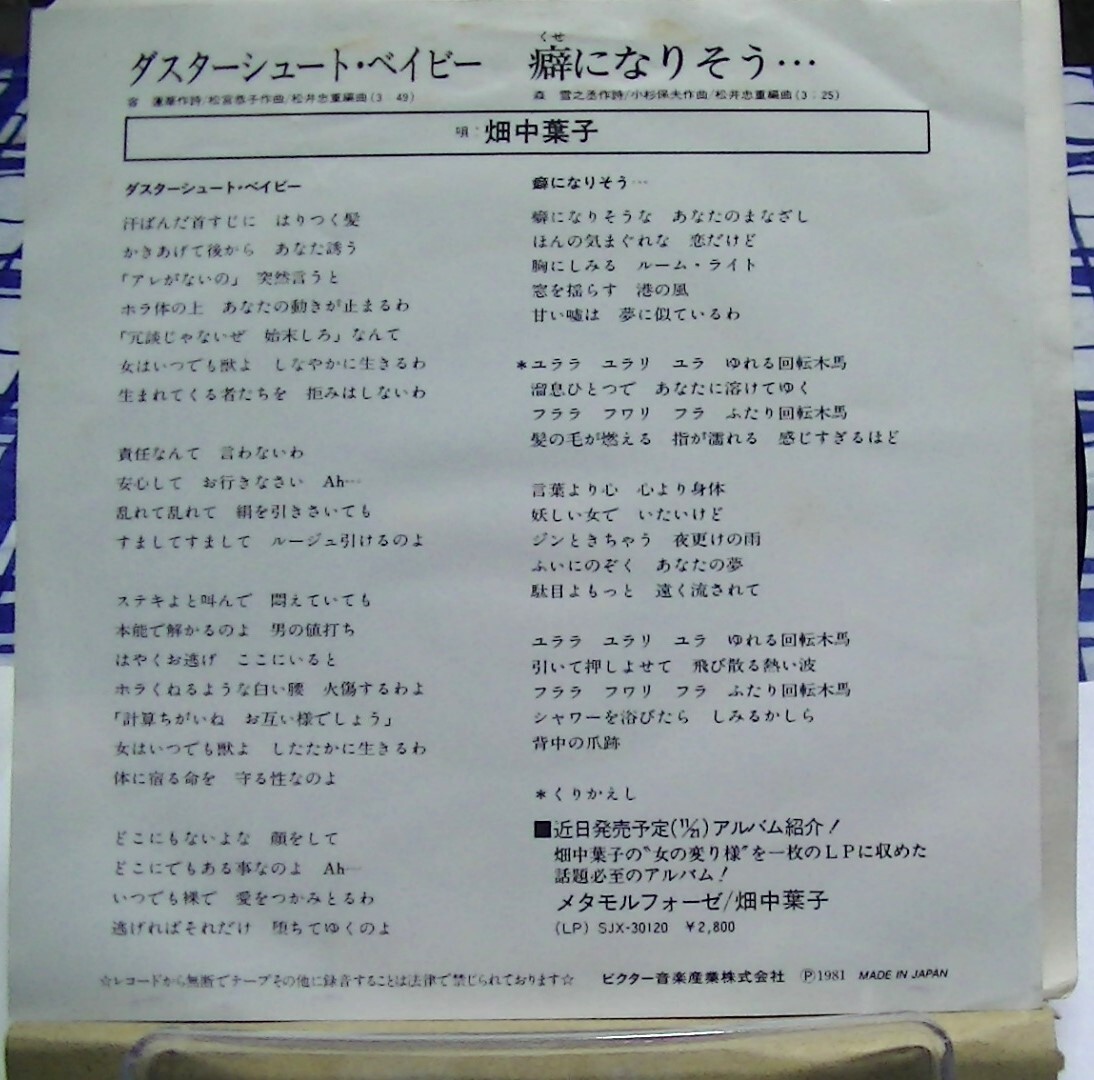 ダスターシュート・ベイビー
蓮華作詩/松宮恭子作曲/松井忠重編曲(3 49)
くせ
癖になりそう…
森 雪之丞作詩/小杉保夫作曲/松井忠重編曲(3:25)
唄:畑中葉子
ダスターシュート・ベイビー
汗ばんだ首すじに はりつく髪
かきあげて後から あなた誘う
「アレがないの」 突然言うと
ホラ体の上 あなたの動きが止まるわ
「冗談じゃないぜ 始末しろ」なんて
女はいつでも獣よ しなやかに生きるわ
生まれてくる者たちを 拒みはしないわ
責任なんて 言わないわ
安心して お行きなさい Ah…
乱れて乱れて 絹を引きさいても
すましてすまして ルージュ引けるのよ
ステキよと叫んで 悶えていても
本能で解かるのよ 男の値打ち
はやくお逃げ ここにいると
ホラくねるような白い腰 火傷するわよ
「計算ちがいね お互い様でしょう」
女はいつでも獣よ したたかに生きるわ
体に宿る命を 守る性なのよ
どこにもないよな 顔をして
どこにでもある事なのよ Ah…
いつでも裸で 愛をつかみとるわ
逃げればそれだけ 堕ちてゆくのよ
癖になりそう…
癖になりそうな あなたのまなざし
ほんの気まぐれな 恋だけど
胸にしみる ルーム・ライト
窓を揺らす 港の風
甘い嘘は 夢に似ているわ
*ユララ ユラリ ユラ ゆれる回転木馬
溜息ひとつで あなたに溶けてゆく
フララ フワリ フラ ふたり回転木馬
髪の毛が燃える 指が濡れる 感じすぎるほど
言葉より心 心より身体
妖しい女で いたいけど
ジンときちゃう 夜更けの雨
ふいにのぞく あなたの夢
駄目よもっと 遠く流されて
ユララ ユラリ ユラ ゆれる回転木馬
引いて押しよせて 飛び散る熱い波
フララ フワリ フラ ふたり回転木馬
シャワーを浴びたら しみるかしら
背中の爪跡
*くりかえし
■近日発売予定(11/21)アルバム紹介!
畑中葉子の"女の変り様"を一枚のLPに収めた
話題必至のアルバム!
メタモルフォーゼ/畑中葉子
(LP) SJX-30120 ¥2,800
☆レコードから無断でテープその他に録音することは法律で禁じられております☆
ビクター音楽産業株式会社 Ⓟ1981 MADE IN JAPAN